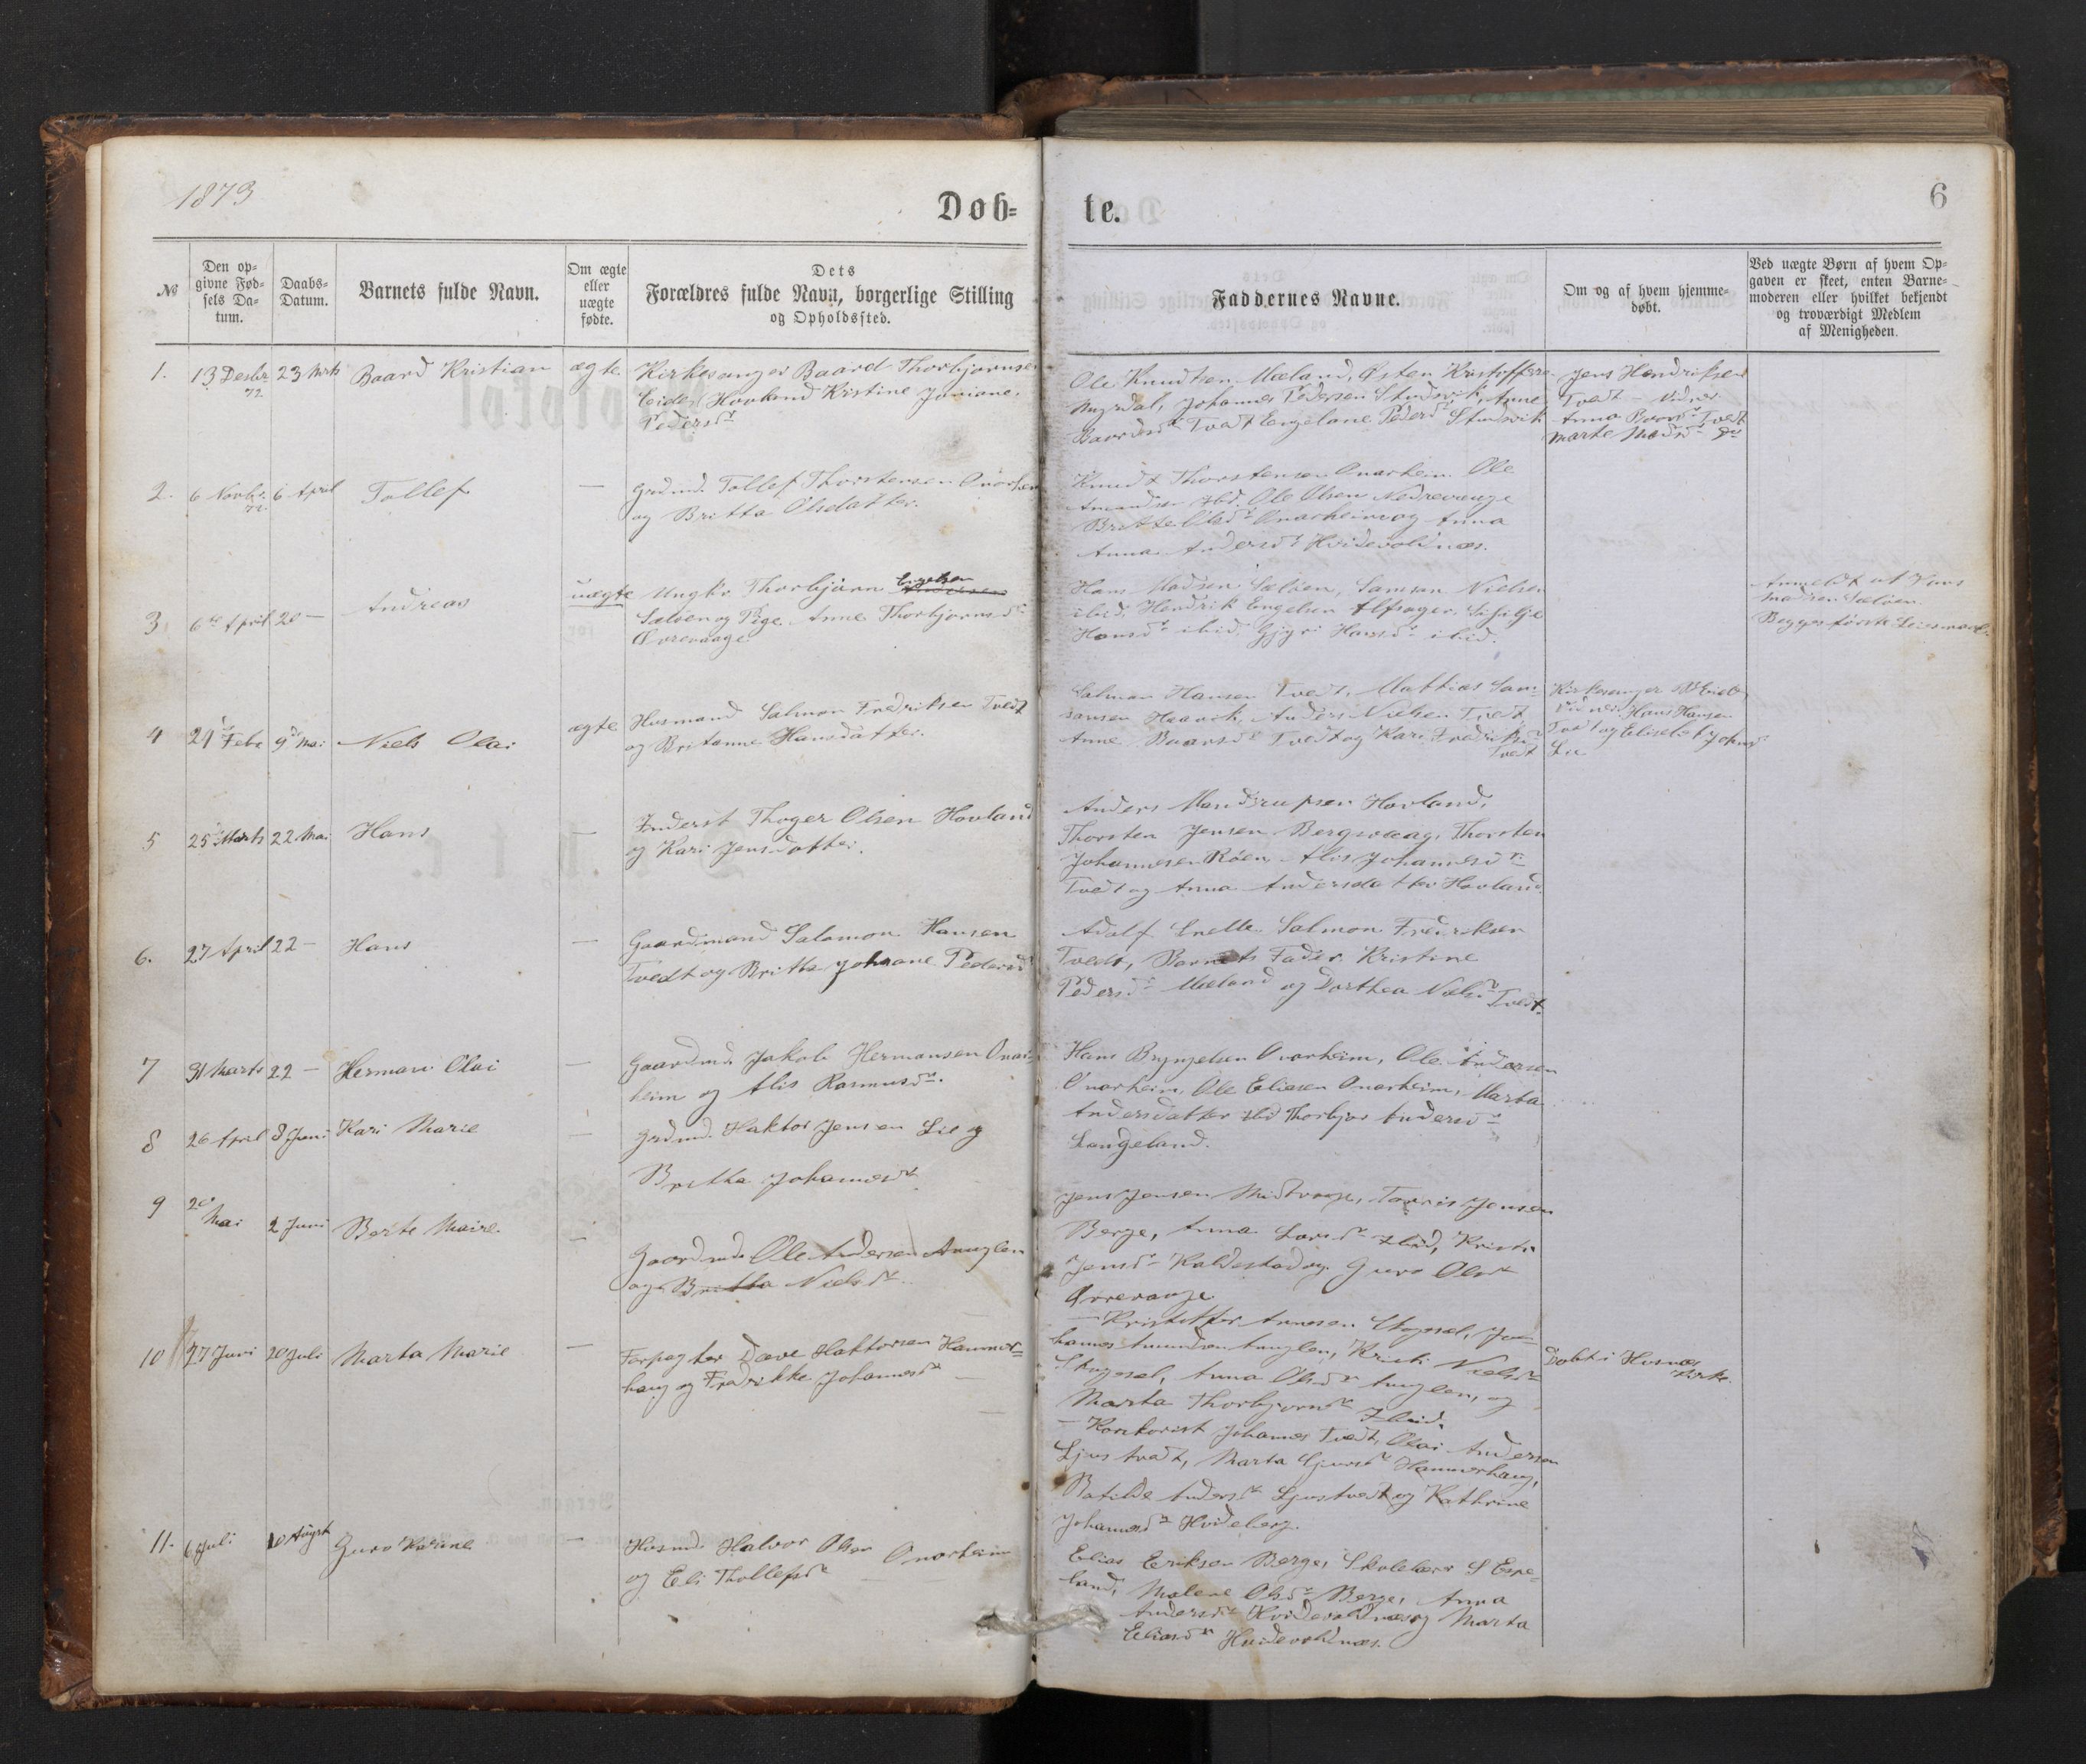 1873
Døb=
te.
6
№
Den op=
givne Fød=
sels Da=
tum.
Daabs=
Datum.
Barnets fulde Navn.
Om ægte
eller
uægte
fødte.
Dets
Forældres fulde Navn, borgerlige Stilling
og Opholdssted.
Faddernes Navne.
Om og af hvem hjemme=
døbt.
Ved uægte Børn af hvem Op=
gaven er skeet, enten Barne=
moderen eller hvilket bekjendt
og troværdigt Medlem
af Menigheden.
1. 13 Desbr 23 Mrts Baard Kristian ægte Kirkesanger Baard Thorbjørnsen
72
Eide, Hovland Kristine Joniane
Pedersdr
Ole Knudsen Mæland, Østen Kristoffers
Myrdal, Johannes Pedersen Studsvik, Anne
Baardsdr Tvedt Engelane Pedersdr Studsvik
Jens Hendriksen
Tvedt – Vidner
Anna Baardsdr Tvedt
Marte Madsdr
2. 6 Novbr. 6 April Tollef — Grdmd. Tollef Thorstensen Onarheim
72.
og Britta Olsdatter.
Knud Thorstensen Onarheim Ole
Amundsen Ibd. Ole Olsen Nedrevaage
Britte Olsdr Onarheim og Anna
Anna Andersdr Hvidevoldnæs.
3 6te April 20 — Andreas uægte Ungkr Thorbjørn Engelsen
Sæløen og Pige Anne Thorbjørnsdr
Øvrevaage
Hans Madsen Sæløen, Samson Nielsen
ibid, Hendrik Engelsen Alfsager, Sisilje
Hansdr ibid, Gjyri Hansdr ibid.
Anmeldt af Hans
Madsen Sæløen.
Begges første Leiermaal.
4 21 Febr 9d Mai Niels Olai ægte Husmand Salmon Fredriksen Tvedt
og Britanne Hansdatter.
Salmon Hansen Tvedt, Mathias Sam=
sonsen Haavik, Anders Nielsen Tvedt
Anne Baarsdr Tvedt og Kari Fredriksdr
Tvedt
Kirkesanger B Eide
Vidner: Hans Hansen
Tvedt og Elisebet Johnsdr
Lie
5 25 Marts 22 Mai Hans — Inderst Thoger Olsen Hovland
og Kari Jensdatter.
Anders Mandrupsen Hovland,
Thorsten Jensen Bergsvaag, Thorsten
Johannesen Røen, Alis Johannesdr
Tvedt og Anna Andersdatter Hovland.
6. 27 April 22 — Hans — Gaardmand Salamon Hansen
Tvedt og Britha Johanne Pedersdr
Adolf Snelle Salmon Fredriksen
Tvedt, Barnets Fader Kristine
Pedersdr Mæland og Dorthea Nielsdr Tvedt.
7 31 Marts 22 — Herman Olai — Gaardmd. Jakob Hermansen Onar=
heim og Alis Rasmusdr.
Hans Brynjelsen Onarheim, Ole Andersen
Onarheim, Ole Eliasen Onarheim, Marta
Andersdatter Ibid Thorbjør Andersdr
Langeland.
8 26 April 8 Juni Kari Marie — Grdmd. Haktor Jensen Lie og
Britha Johannesdr
Jens Jensen Midtvaage, Torris Jensen
Berge, Anna Larsdr Ibid, Kristi
Jensdr Kaldestad og Guro Olsdr
Øvrevaage
9 2den Mai 2 Juni Berte Marie — Gaardmd. Ole Andersen Anuglen
og Britta Nielsdr
— Kristoffer Arnesen Stegesel, Jo=
hannes Amundsen Anuglen, Kristi Nielsdr
Stegesel, Anna Olsdr Anuglen, og
Marta Thorbjørnsdr Ibid.
10 27 Juni 20 Juli Marta Marie — Forpagter Dave Haktorsen Hammer=
haug og Fredrikke Johannesdr —
— Kontorist Johannes Tvedt, Olai Andersen
Ljostvedt, Marta Gjursdr Hammerhaug,
Botilde Andersdr Ljostvedt og Kathrine
Johannesdr Hvideberg.
Døbt i Husnæs
Kirke.
11. 6 Juli 10 August Guro Karine — Husmd. Halvor Olsen Onarheim
og Eli Thollefsdr —
Elias Eriksen Berge, Skolelærer S Espe=
land, Malene Olsdr Berge, Anna
Andersdr Hvidevoldnæs og Marta
Eliasdr Hvidevoldnæs.